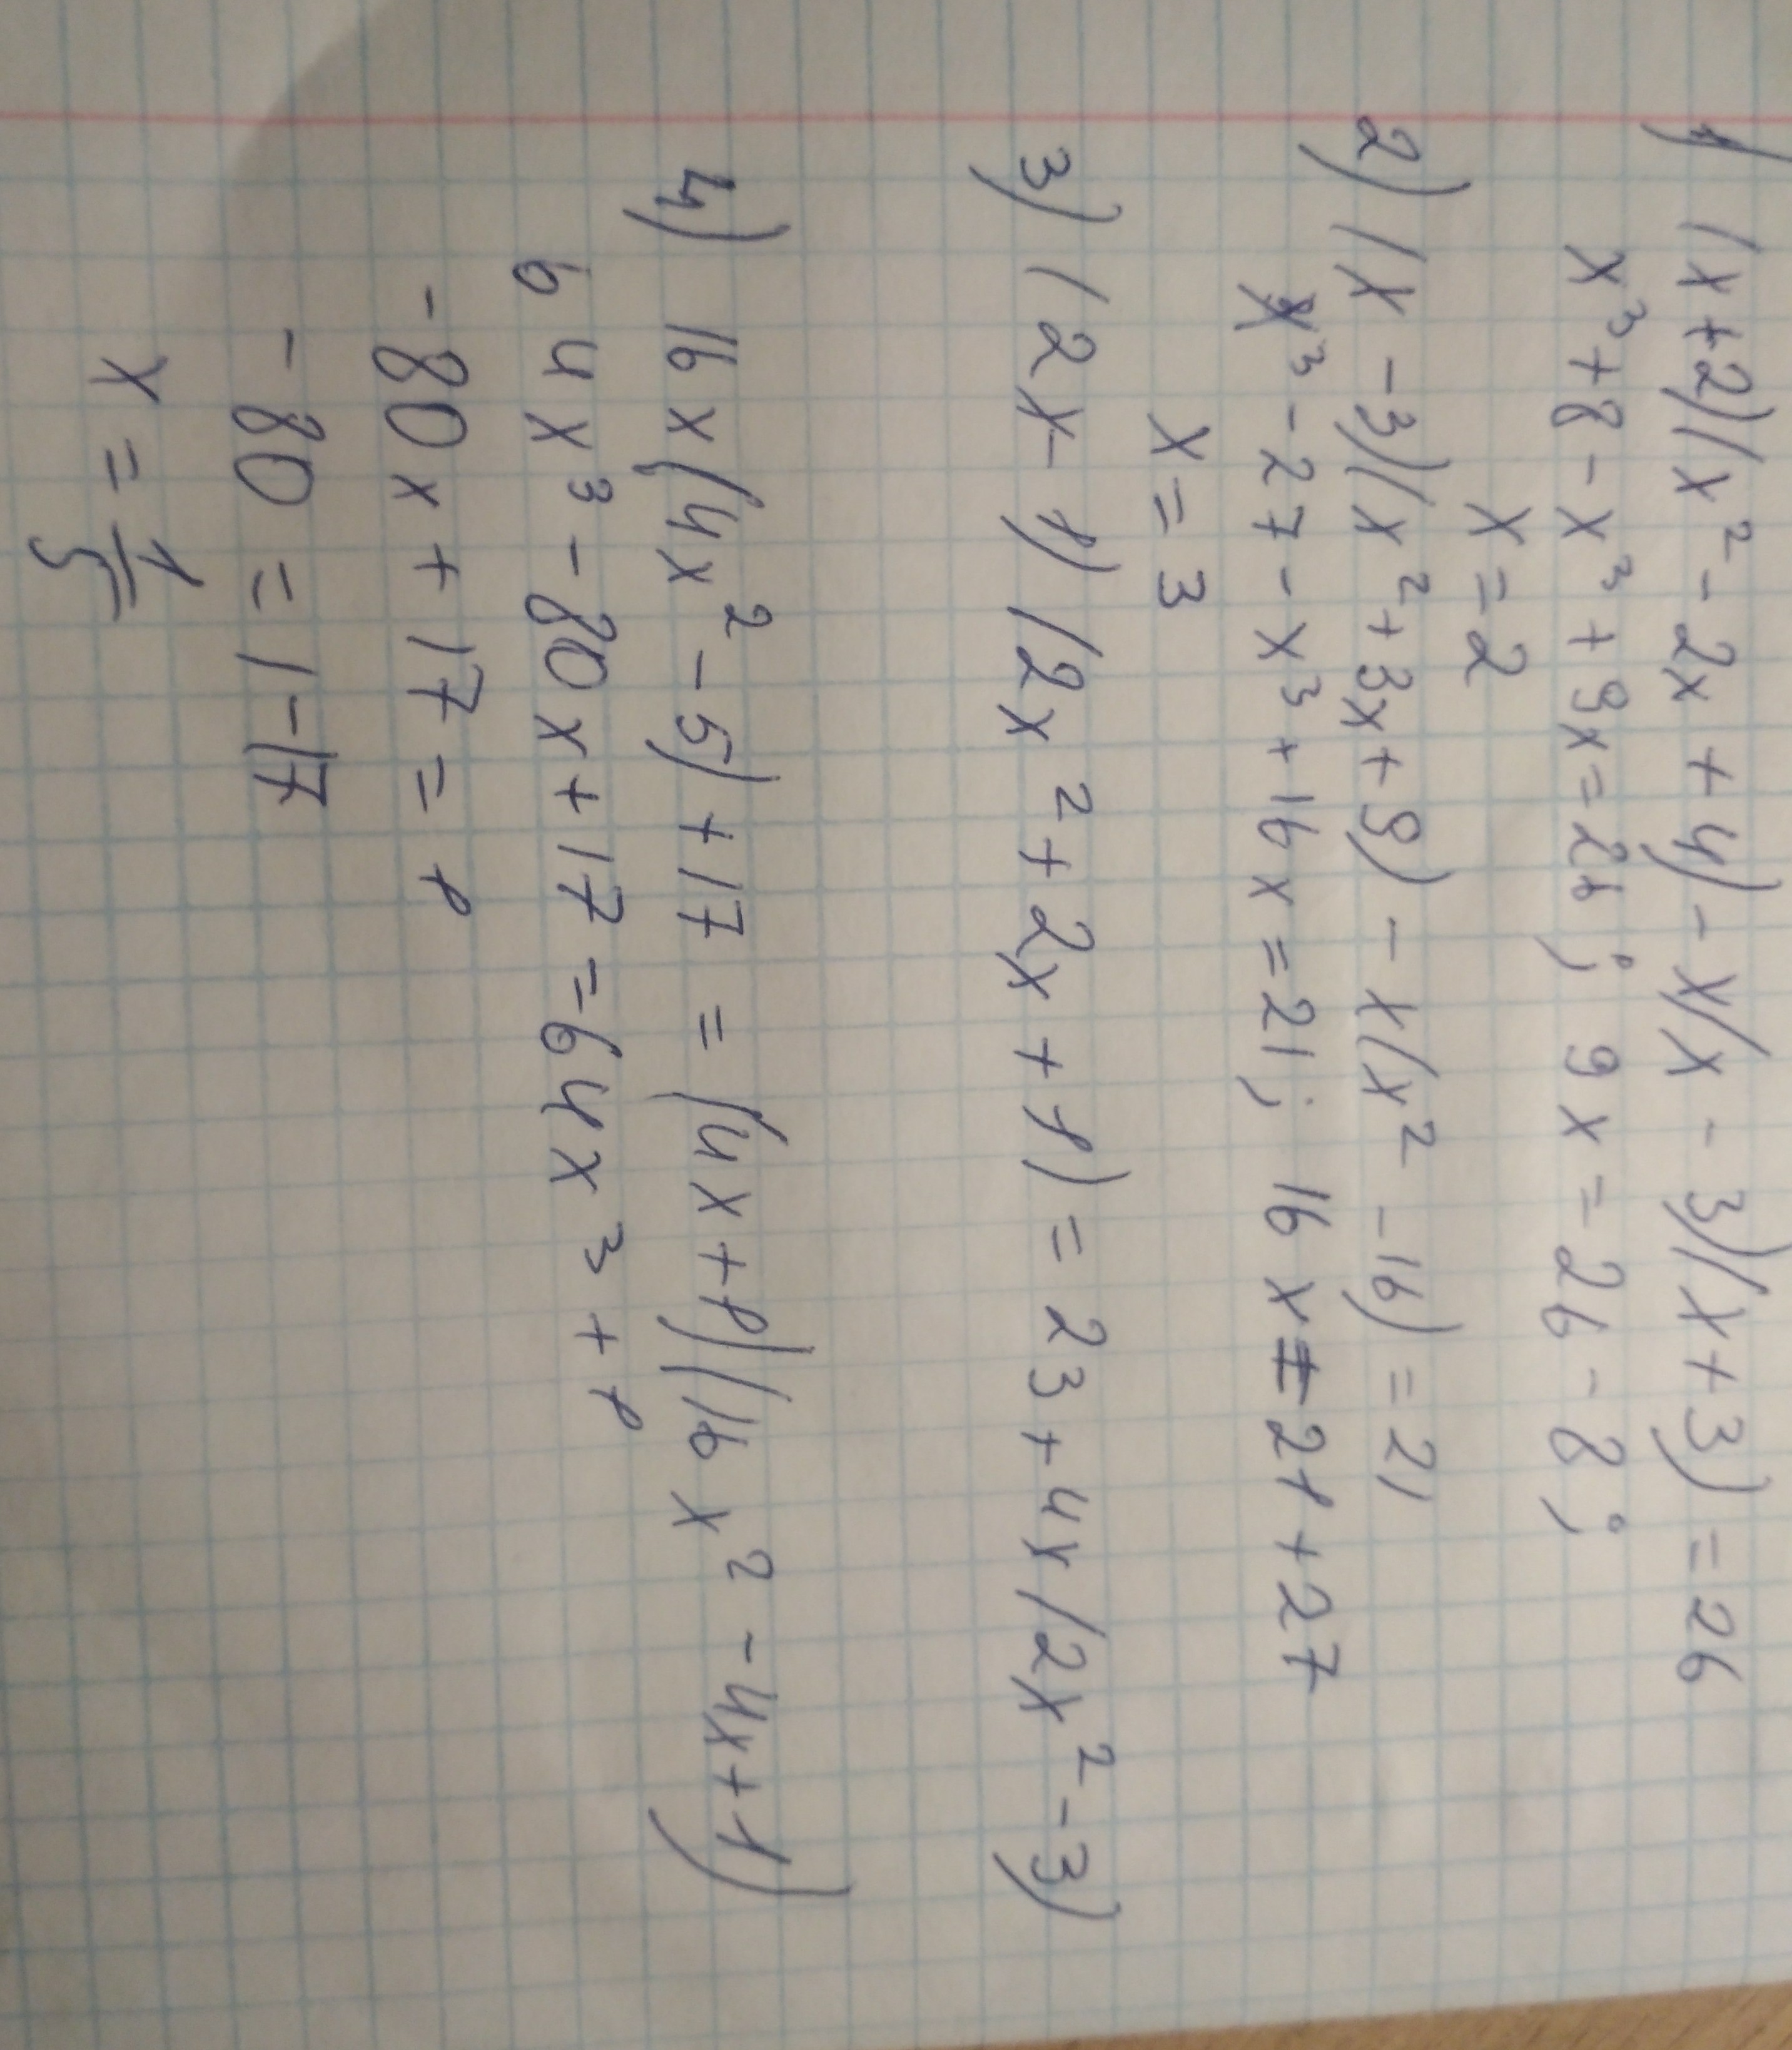 1) (x+2)(x²-2x+4)-x(x-3)(x+3)=26
x³+8-x³+9x=26; 9x=26-8;
x=2
2) (x-3)(x²+3x+9)-x(x²-16)=21
x³-27-x³+16x=21; 16x=21+27
x=3
3) (2x-1)(2x²+2x+1)=23+4x(2x²-3)
4) 16x(4x²-5)+17=(4x+1)(16x²-4x+1)
64x³-80x+17=64x³+1
-80x+17=1
-80=1-17
x=1/5